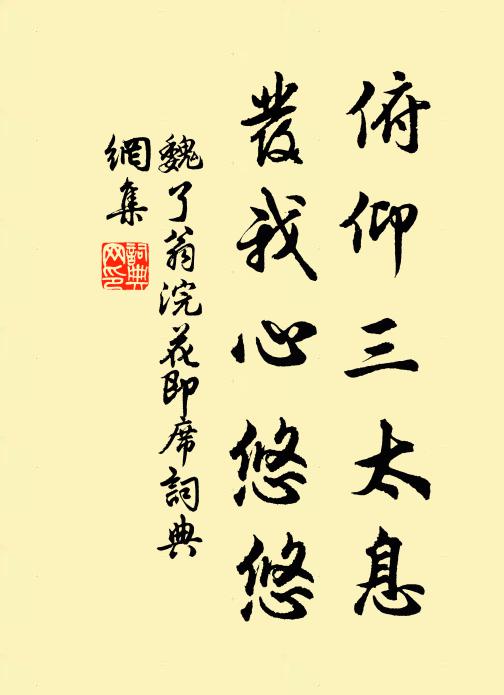 俯仰三太息
發我心悠悠
魏了翁浣花即席詞典
網集
詞典網印